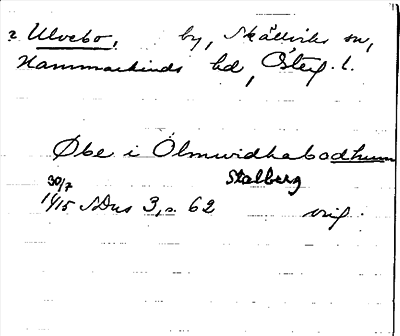 ? Ulvebo, by, Skällviks sn,
Hammarkinds hd, Östg. l.
Øbe i Ölmwidhabodhum
Stalberg
30/7
1415 SDns 3, s. 62 orig.